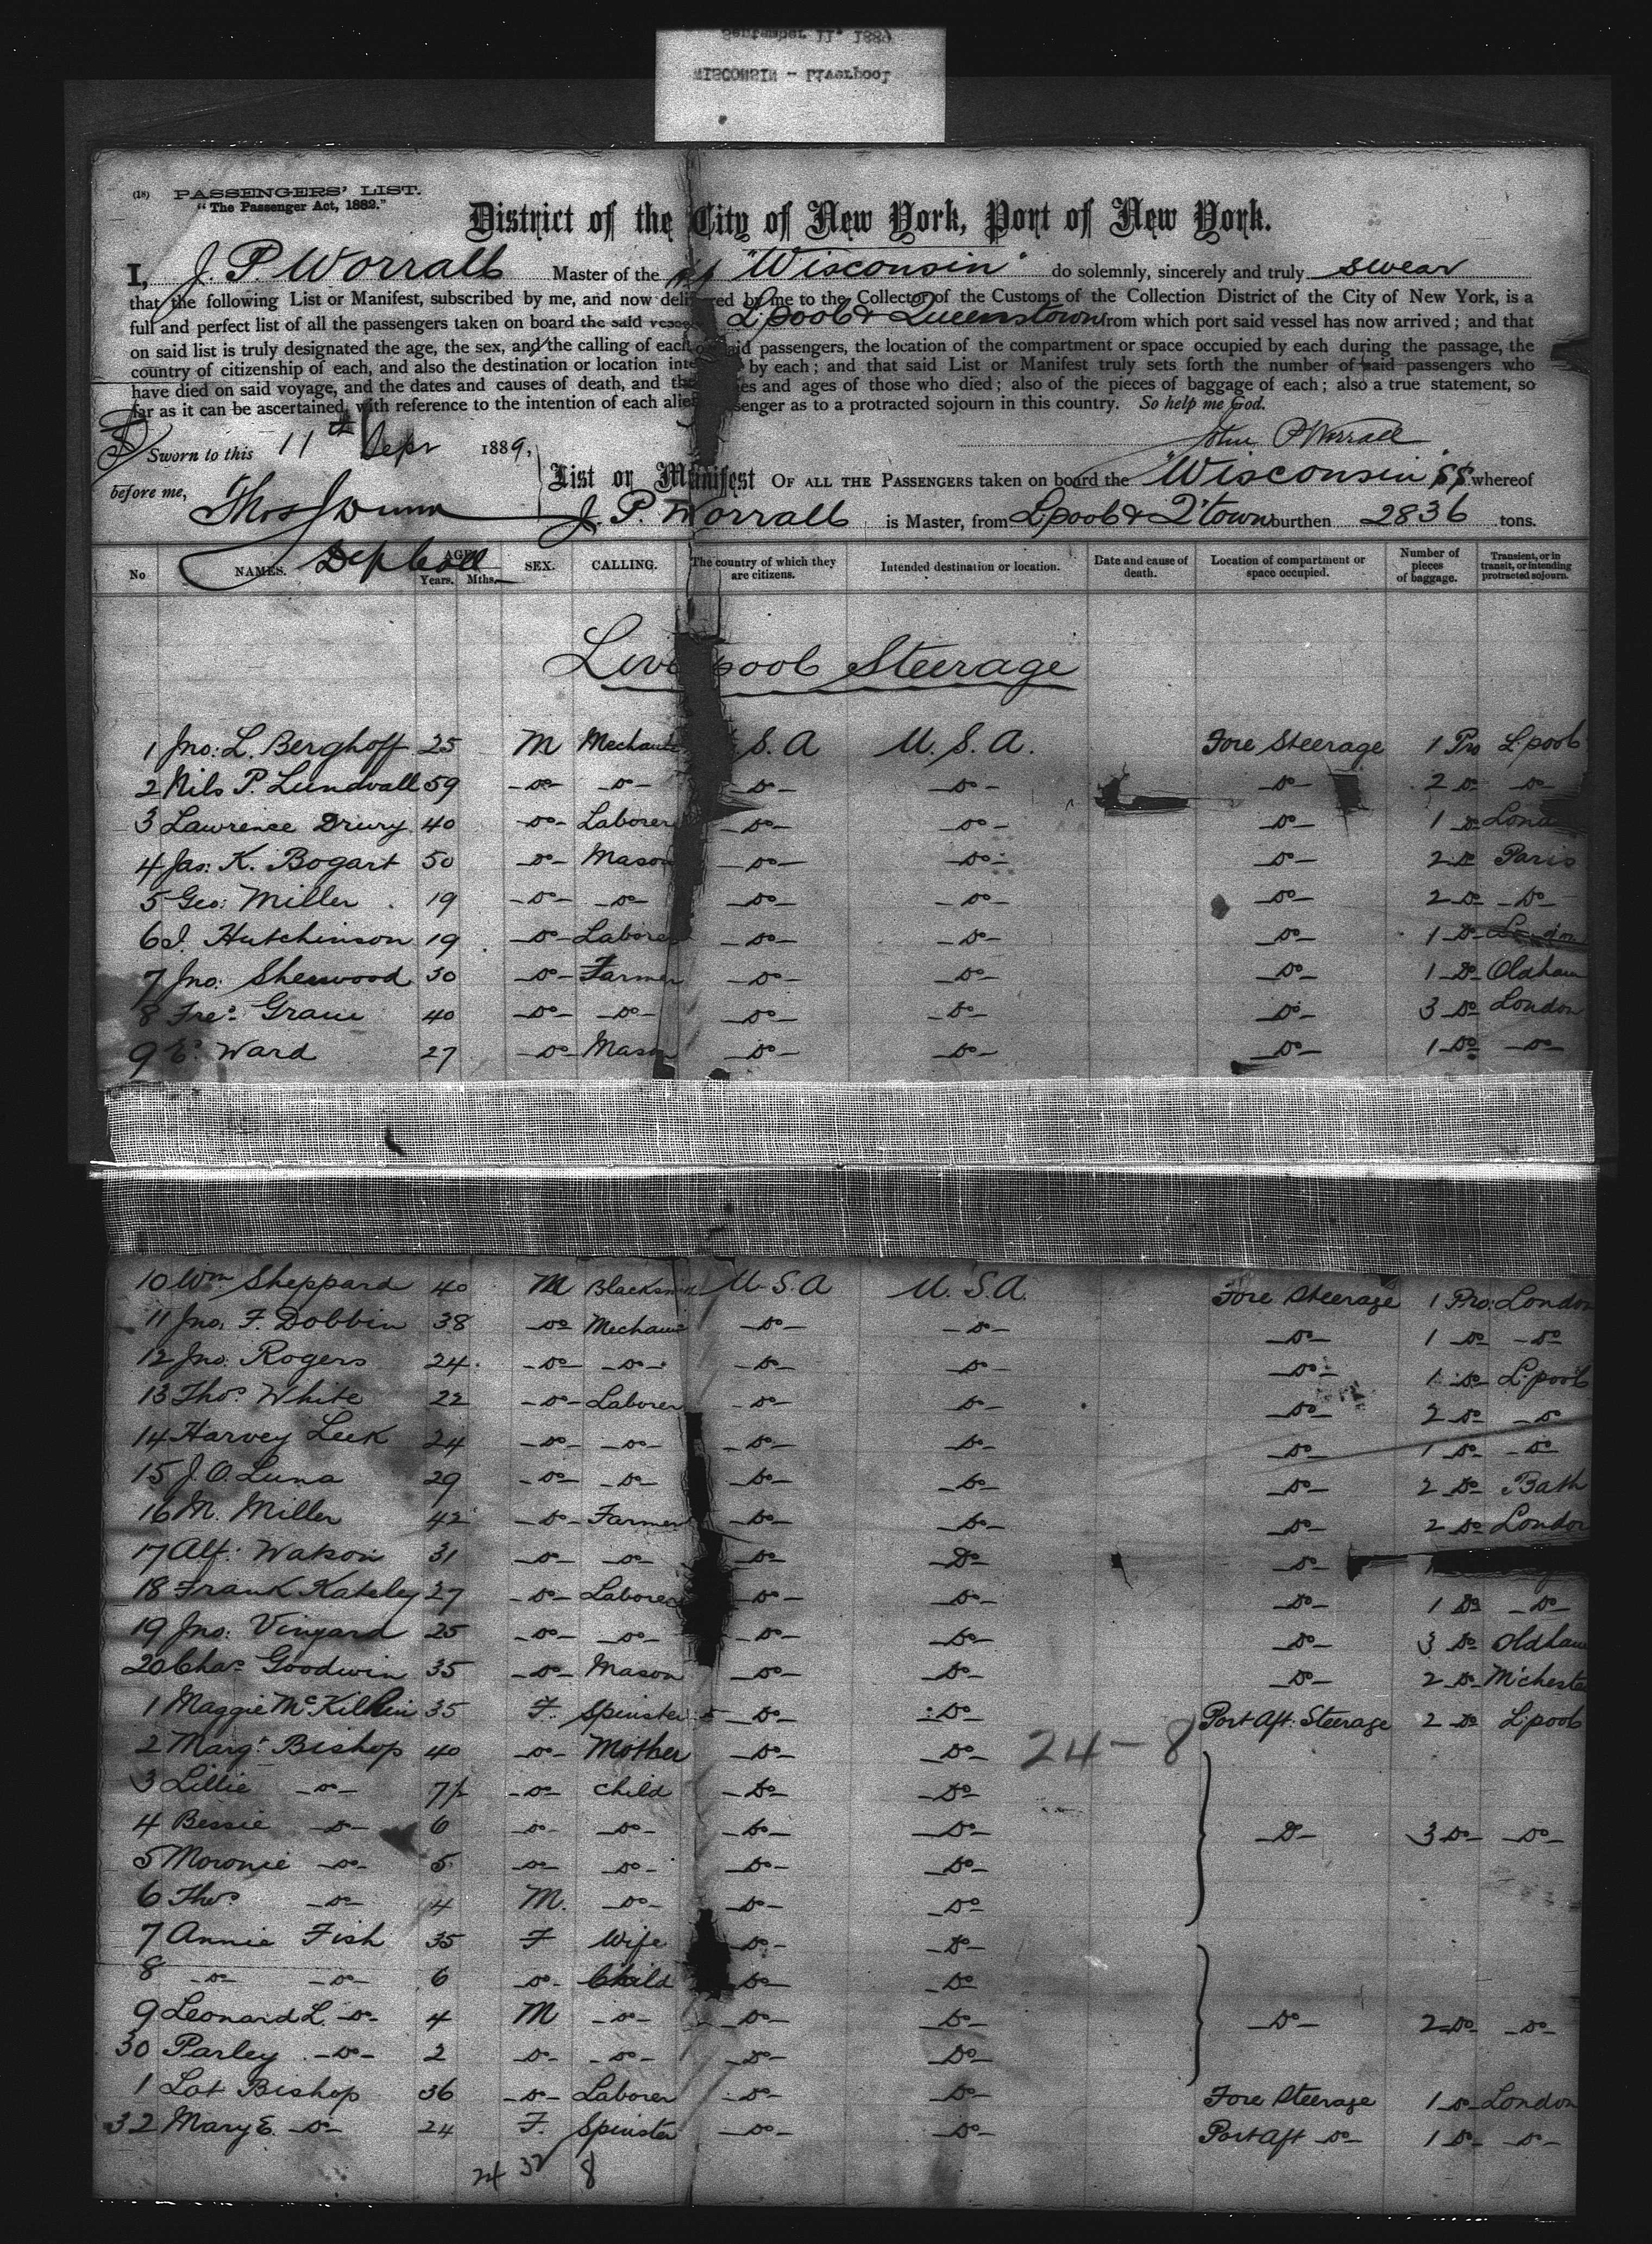 September 11, 1889
WISCONSIN - Liverpool
(18) PASSENGERS' LIST.
"The Passenger Act, 1882."
District of the City of New York, Port of New York.
I, J. P. Worrall Master of the "Wisconsin" do solemnly, sincerely and truly swear
that the following List or Manifest, subscribed by me, and now delivered by me to the Collector of the Customs of the Collection District of the City of New York, is a
full and perfect list of all the passengers taken on board the said vessel L'pool & Queenstown from which port said vessel has now arrived; and that
on said list is truly designated the age, the sex, and the calling of each of said passengers, the location of the compartment or space occupied by each during the passage, the
country of citizenship of each, and also the destination or location inte by each; and that said List or Manifest truly sets forth the number of said passengers who
have died on said voyage, and the dates and causes of death, and the es and ages of those who died; also of the pieces of baggage of each; also a true statement, so
far as it can be ascertained, with reference to the intention of each alien senger as to a protracted sojourn in this country. So help me God.
Sworn to this 11th Sepr 1889, John P Worrall
List or Manifest OF ALL THE PASSENGERS taken on board the "Wisconsin" SS. whereof
before me, Thos J Dunn J. P. Worrall is Master, from L'pool & Q'town burthen 2836 tons.
Dep Coll
No NAMES. AGE Years. Mths. SEX. CALLING. The country of which they are citizens. Intended destination or location. Date and cause of death. Location of compartment or space occupied. Number of pieces of baggage. Transient, or in transit, or intending protracted sojourn.
Liverpool Steerage
1 Jno: L. Berghoff 25 M Mechanic S. A U. S. A. Fore Steerage 1 Pro L'pool
2 Nils P. Lundvall 59 -Do- -Do- -Do- -Do- -Do- 2 Do -Do-
3 Lawrence Drury 40 -Do- Laborer -Do- -Do- -Do- 1 Do Lond
4 Jas: K. Bogart 50 -Do- Mason -Do- -Do- -Do- 2 Do Paris
5 Geo: Miller 19 -Do- -Do- -Do- -Do- -Do- 2 Do -Do-
6 J. Hutchinson 19 -Do- Laborer -Do- -Do- -Do- 1 Do London
7 Jno: Sherwood 30 -Do- Farmer -Do- -Do- -Do- 1 Do Oldham
8 Fre: 40 -Do- -Do- -Do- -Do- -Do- 3 Do London
9 E: Ward 27 -Do- Mason -Do- -Do- -Do- 1 Do -Do-
10 Wm Sheppard 40 M Blacksmith U. S. A U. S. A. Fore Steerage 1 Pro: London
11 Jno, F. Dobbin 38 -Do- Mechanic -Do- -Do- -Do- 1 Do -Do-
12 Jno: Rogers 24 -Do- -Do- -Do- -Do- -Do- 1 Do L'pool
13 Thos White 22 -Do- Laborer -Do- -Do- -Do- 2 Do -Do-
14 Harvey Leek 24 -Do- -Do- -Do- -Do- -Do- 1 Do -Do-
15 J. O. Luna 29 -Do- -Do- -Do- -Do- -Do- 2 Do Bath
16 M. Miller 42 -Do- Farmer -Do- -Do- -Do- 2 Do London
17 Alf: Watson 31 -Do- -Do- -Do- -Do- -Do- 1
18 Frank Kateley 27 -Do- Laborer -Do- -Do- -Do- 1 Do -Do-
19 Jno: Vinyard 25 -Do- -Do- -Do- -Do- -Do- 3 Do Oldham
20 Chas Goodwin 35 -Do- Mason -Do- -Do- -Do- 2 Do M'chester
1 Maggie 35 F. Spinster -Do- -Do- Port Aft: Steerage 2 Do L'pool
2 Margt Bishop 40 -Do- Mother -Do- -Do- 24-8
3 Lillie -Do- 7 -Do- child -Do- -Do-
4 Bessie -Do- 6 -Do- -Do- -Do- -Do- -Do- 3 Do -Do-
5 Moronie -Do- 5 -Do- -Do- -Do- -Do-
6 Thos -Do- 4 M. -Do- -Do- -Do-
7 Annie Fish 35 F Wife -Do- -Do-
8 -Do- -Do- 6 -Do- Child -Do- -Do-
9 Leonard L. -Do- 4 M -Do- -Do- -Do- -Do- 2 Do -Do-
30 Parley -Do- 2 -Do- -Do- -Do- -Do-
1 Lot Bishop 36 -Do- Laborer -Do- -Do- Fore Steerage 1 Do London
32 Mary E. -Do- 24 F. Spinster -Do- -Do- Port Aft -Do- 1 Do -Do-
24 32 8